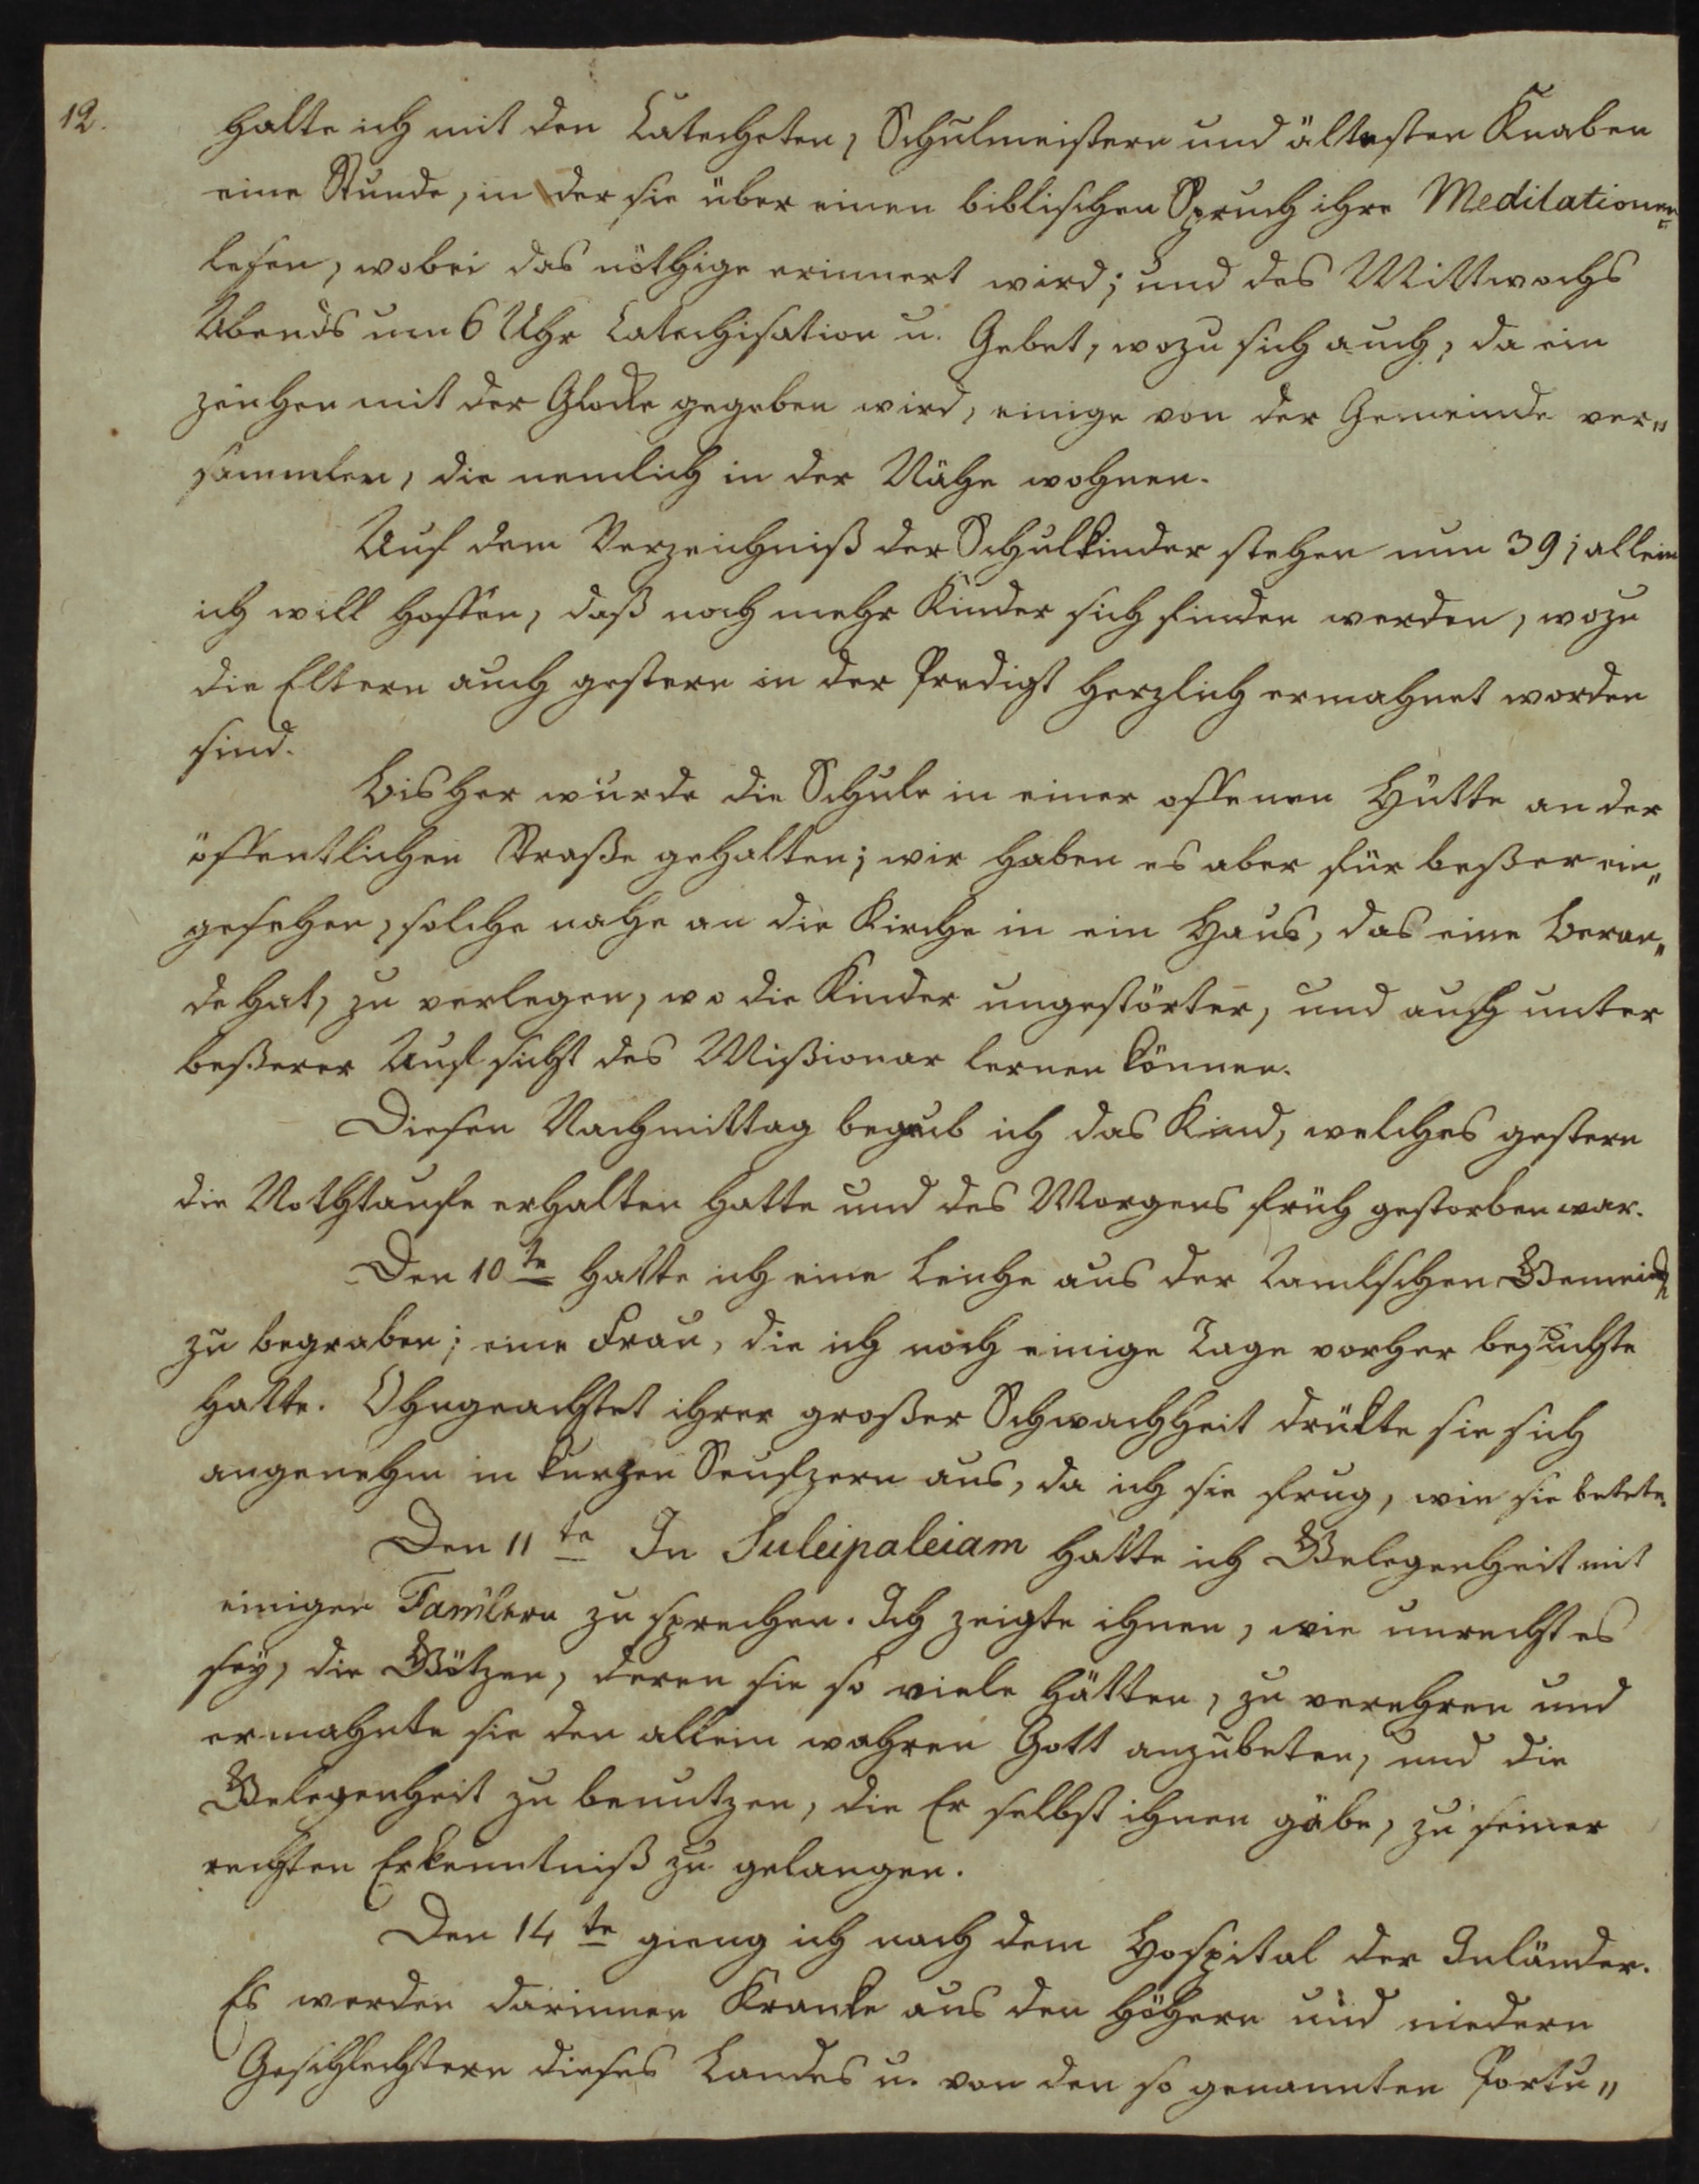 12.
halte ich mit den Catecheten, Schulmeistern und ältesten Knaben
eine Stunde, in der sie über einen biblischen Spruch ihre Meditationen
lesen, wobei das nöthige erinnert wird; und des Mittwochs
Abends um 6 Uhr Catechisation u. Gebet, wozu sich auch, da ein
zeichen mit der Glocke gegeben wird, einige von der Gemeinde ver„
sammlen, die nemlich in der Nähe wohnen.
Auf dem Verzeichniß der Schulkinder stehen nun 39; allein
ich will hoffen, daß noch mehr Kinder sich finden werden, wozu
die Eltern auch gestern in der Predigt herzlich ermahnet worden
sind.
Bisher wurde die Schule in einer offenen Hütte an der
öffentlichen Straße gehalten; wir haben es aber für beßer ein„
gesehen, solche nahe an die Kirche in ein Haus, das eine Veran„
de hat, zu verlegen, wo die Kinder ungestörter, und auch unter
beßerer Aufsicht des Mißionar lernen können.
Diesen Nachmittag begrub ich das Kind, welches gestern
die Nothtaufe erhalten hatte und des Morgens früh gestorben war.
Den 10te hatte ich eine Leiche aus der Tamlschen Gemeinde
zu begraben; eine Frau, die ich noch einige Tage vorher besuchte
hatte. Ohngeachtet ihrer großer Schwachheit drükte sie sich
angenehm in kurzen Seufzern aus, da ich sie frug, wie sie betete.
Den 11te In Suleipaleiam hatte ich Gelegenheit mit
einigen Tamlern zu sprechen. Ich zeigte ihnen, wie unrecht es
sey, die Götzen, deren sie so viele hätten, zu verehren und
ermahnte sie den allein wahren Gott anzubeten, und die
Gelegenheit zu benutzen, die Er selbst ihnen gäbe, zu seiner
rechten Erkenntniß zu gelangen.
Den 14te gieng ich nach dem Hospital der Inländer.
Es werden darinnen Kranke aus den höhern und niedern
Geschlechtern dieses Landes u. von den so genannten Portu„